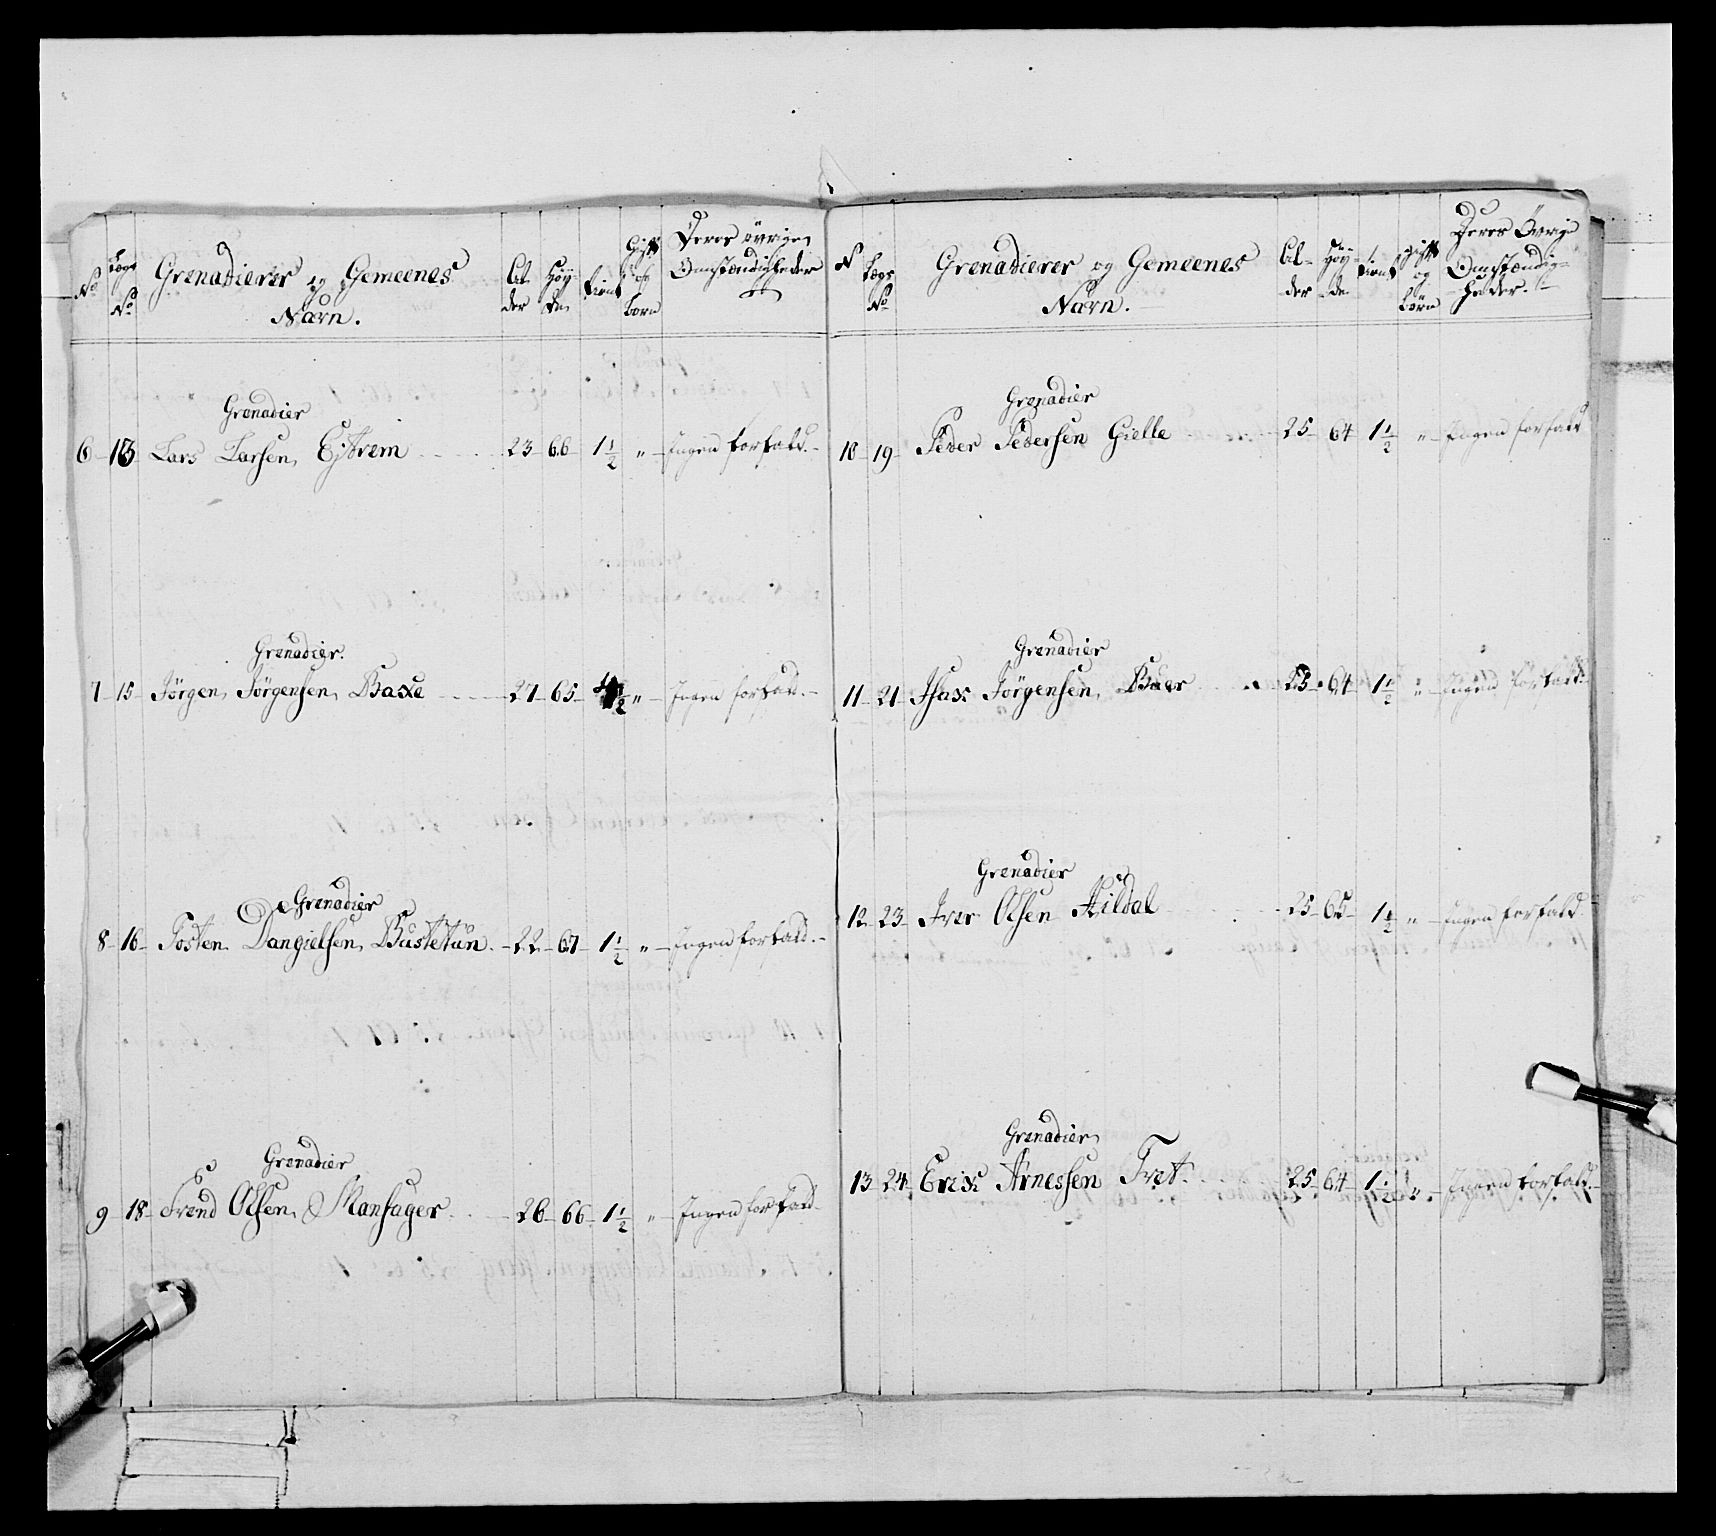 No Lægs No Grenadierer og Gemeenes Nafn. Al- der Höy- de tient Gift og born Deres övrige Omstændigheder
Grenadier
6 - 13 Lars Larsen Ejtrem 23 - 66 - 1 1/2 " - Ingen forfald. -
Grenadier.
7 - 15 - Jörgen Jörgensen Baxe 27 - 65 - 1/2 " - Ingen forfald. -
Grenadier
8 - 16 - Tosten Dangielsen Bustetun - 22 - 67 - 1 1/2 " - Ingen forfald. -
Grenadier
9 18 - Trend Olsen Mansager 26 - 66 - 1 1/2 " - Ingen forfald -
N Lægs No Grenadierer og Gemeenes Nafn. Al- der Höy- de tient gift og börn Deres Övrige Omstændig= heder.
Grenadier
10 - 19 - Peder Pedersen Gielle 25 - 64 - 1 1/2 " - Ingen forfald
Grenadier
11 - 21 - Isax Jörgensen Buer 25 - 64 - 1 1/2 " - Ingen forfald -
Grenadier
12 - 23 - Iver Olsen Hildal 25 - 65 - 1 1/2 " - Ingen forfald.
Grenadier
13 - 24 - Erix Arnessen Tret 25 - 64 - 1 1/2 " - Ingen forfald. -